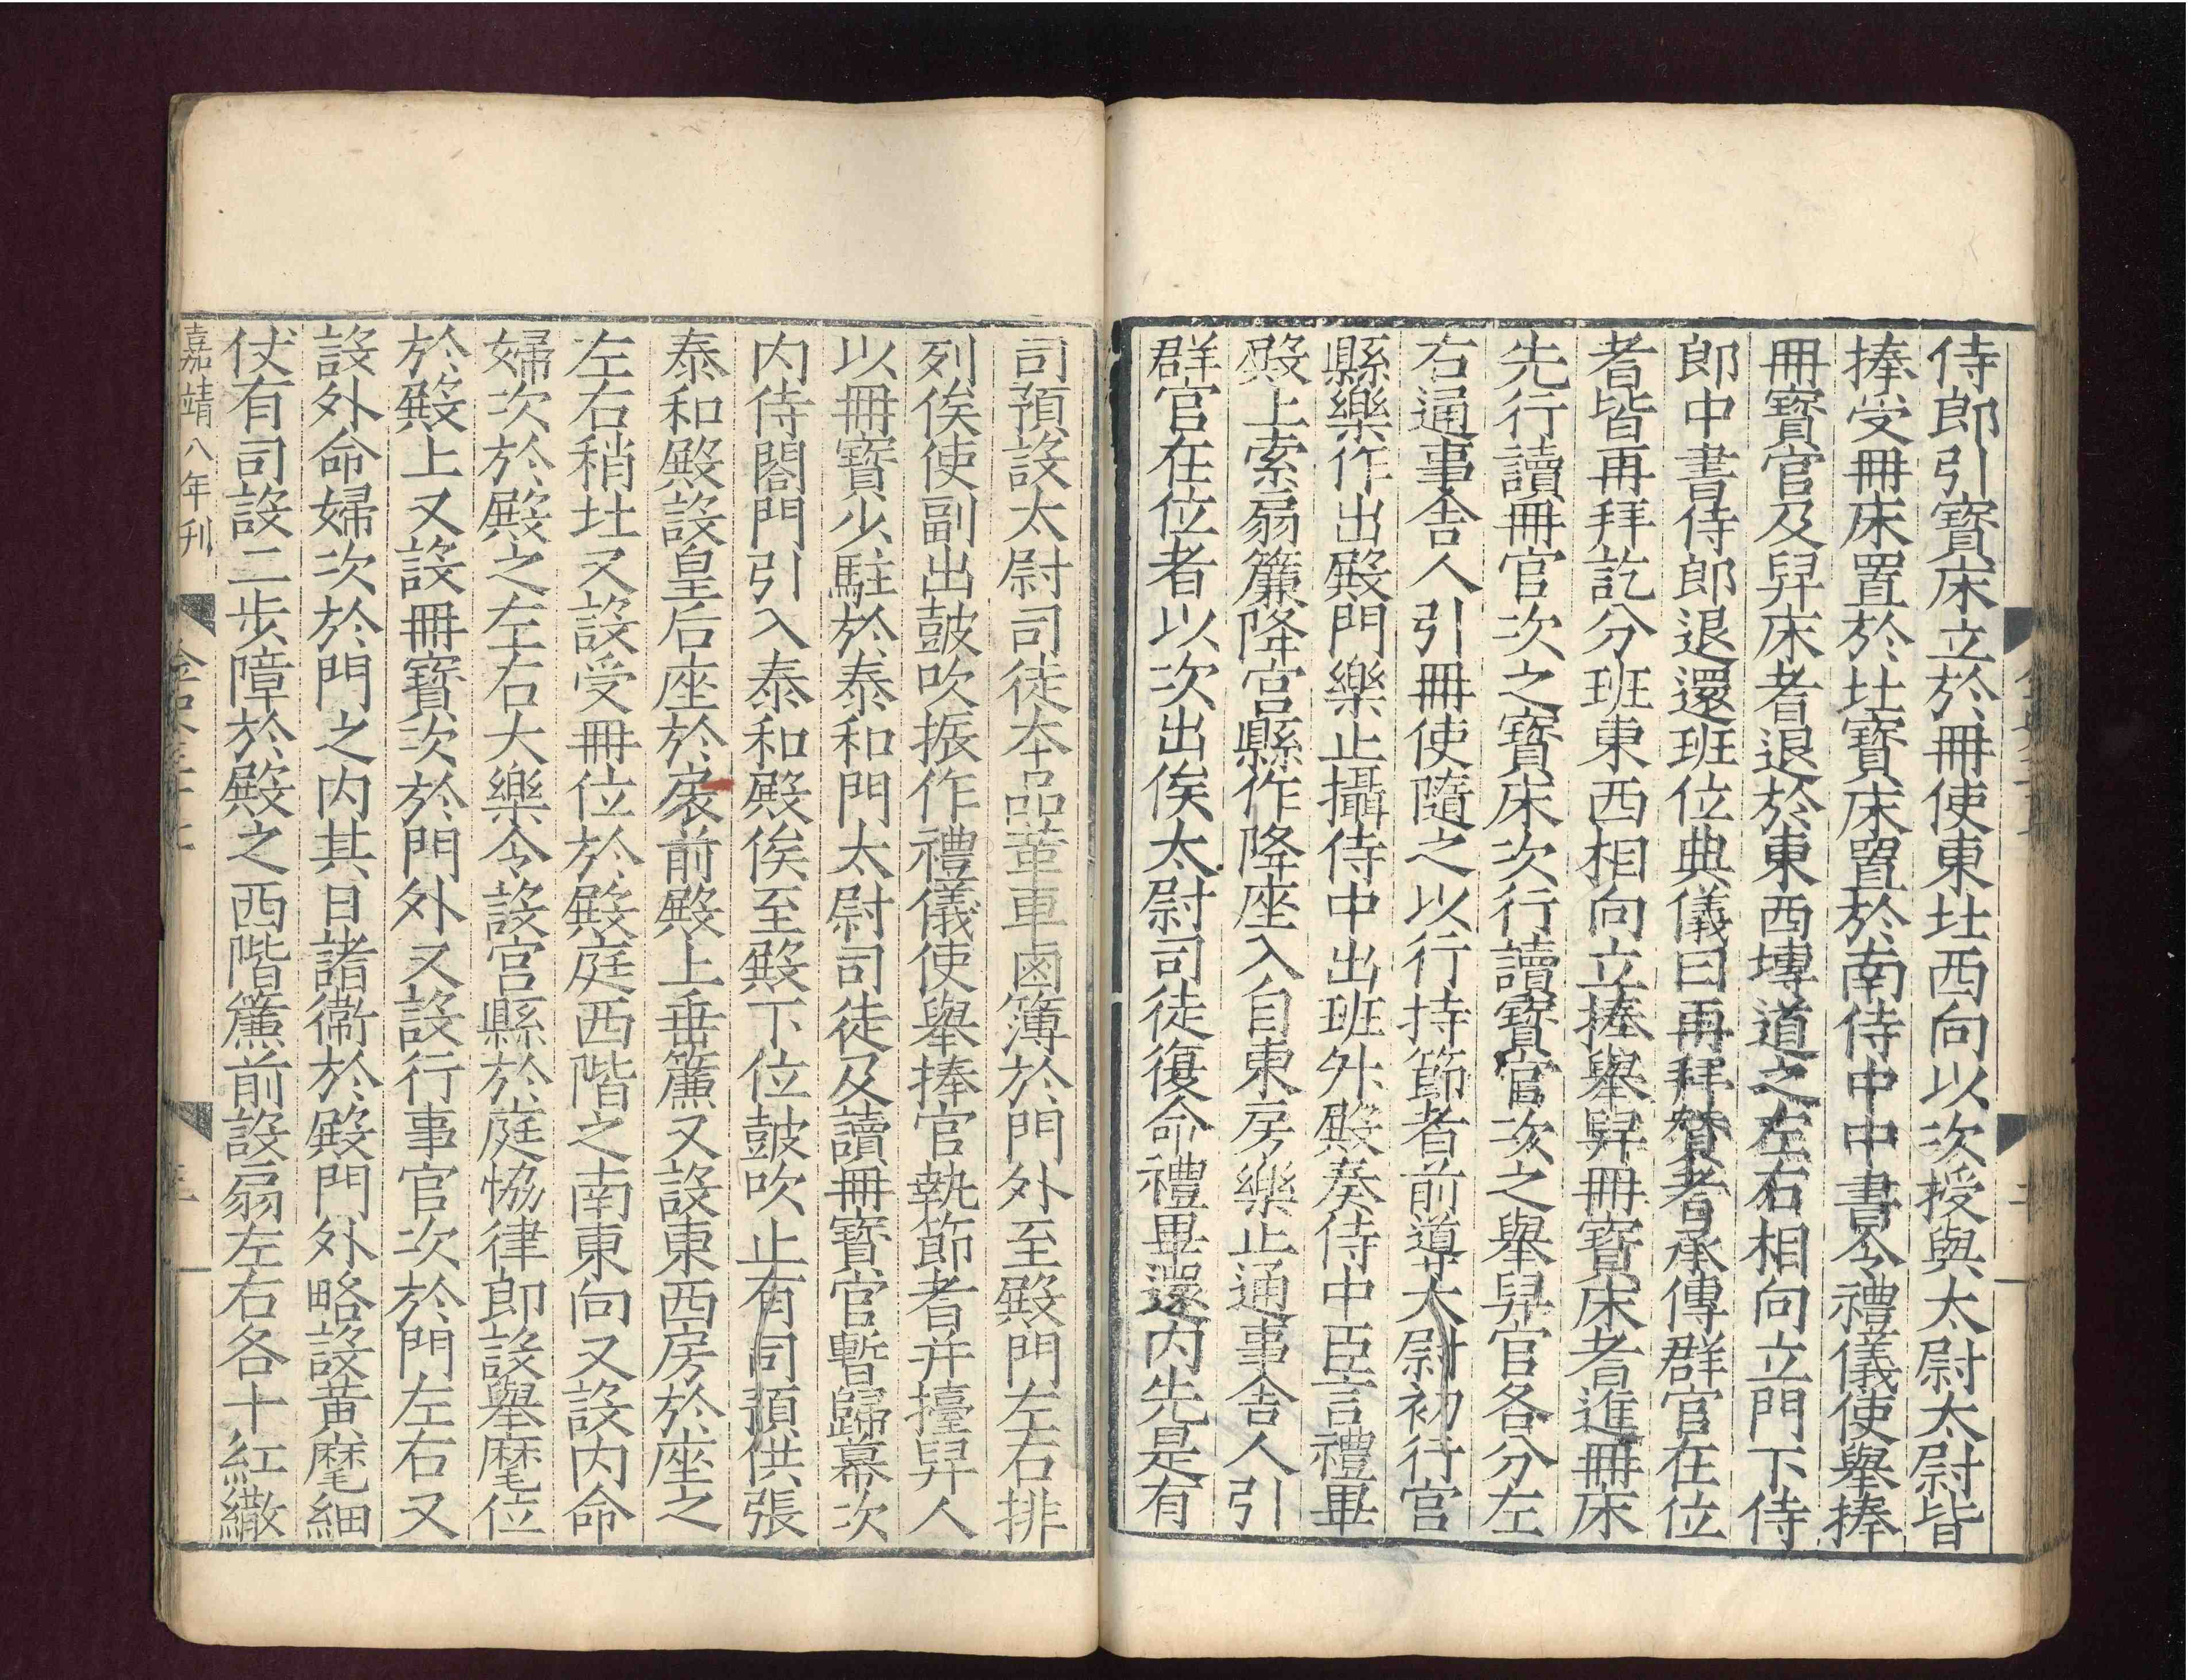 侍郎引寶床立於冊使東㘴西向以次授與太尉太尉皆
捧受冊床置於㘴寶床置於南侍中中書令禮儀使舉捧
冊寶官及舁床者退於東西塼道之左右相向立門下侍
郎中書侍郎退還班位典儀曰再拜贊者承傳群官在位
者皆再拜訖分班東西相向立捧舉舁冊寶床者進冊床
先行讀冊官次之寶床次行讀寶官次之舉舁官各分左
右通事舍人引冊使隨之以行持節者前導太尉初行宮
縣樂作出殿門樂止攝侍中出班外殿奏侍中臣言禮畢
殿上索扇簾降宮縣作降座入自東房樂止通事舍人引
群官在位者以次出俟太尉司徒復命禮畢還内先是有
司預設太尉司徒本品革車鹵簿於門外至殿門左右排
列俟使副出鼓吹振作禮儀使舉捧官執節者并擡舁人
以冊寶少駐於泰和門太尉司徒及讀冊寶官暫歸幕次
内侍閤門引入泰和殿俟至殿下位鼓吹止有司預供張
泰和殿設皇后座於扆前殿上垂簾又設東西房於座之
左右稍㘴又設受冊位於殿庭西階之南東向又設内命
婦次於殿之左右大樂令設宮縣於庭協律郎設舉麾位
於殿上又設冊寶次於門外又設行事官次於門左右又
設外命婦次於門之内其日諸衞於殿門外略設黃麾細
仗有司設二步障於殿之西階簾前設扇左右各十紅繖
嘉靖八年刊